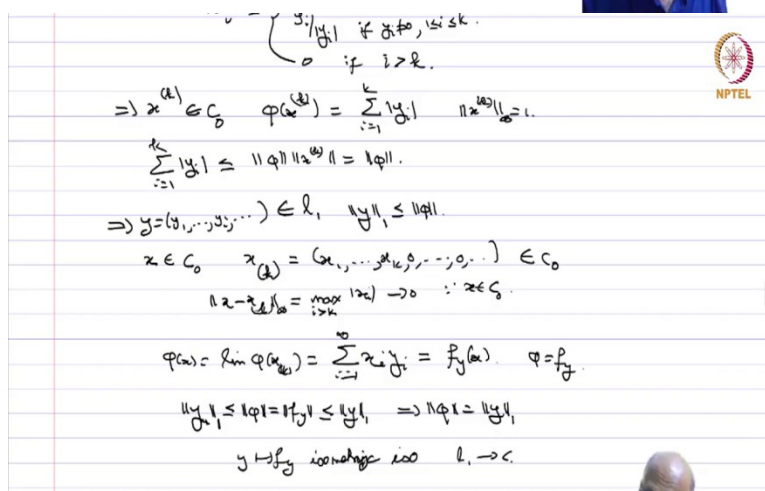 y_i/|y_i| if y_i≠0, 1≤i≤k.
0 if i>k.
NPTEL
⇒) x^(k) ∈ C_0 φ(x^(k)) = Σ_{i=1}^{k} |y_i| ‖x^(k)‖_∞ = 1.
Σ_{i=1}^{k} |y_i| ≤ ‖φ‖ ‖x^(k)‖ = ‖φ‖.
⇒) y=(y_1,...,y_i,...) ∈ l_1 ‖y‖_1 ≤ ‖φ‖.
x ∈ C_0 x_(k) = (x_1,...,x_k,0,...,0,..) ∈ C_0
‖x-x_(k)‖_∞ = max_{i>k} |x_i| → 0 ∵ x∈C_0.
φ(x) = lim φ(x_(k)) = Σ_{i=1}^{∞} x_i y_i = f_y(x). φ=f_y.
‖y‖_1 ≤ ‖φ‖=‖f_y‖ ≤ ‖y‖_1 ⇒ ‖φ‖=‖y‖_1
y ↦ f_y isometric iso l_1 → C